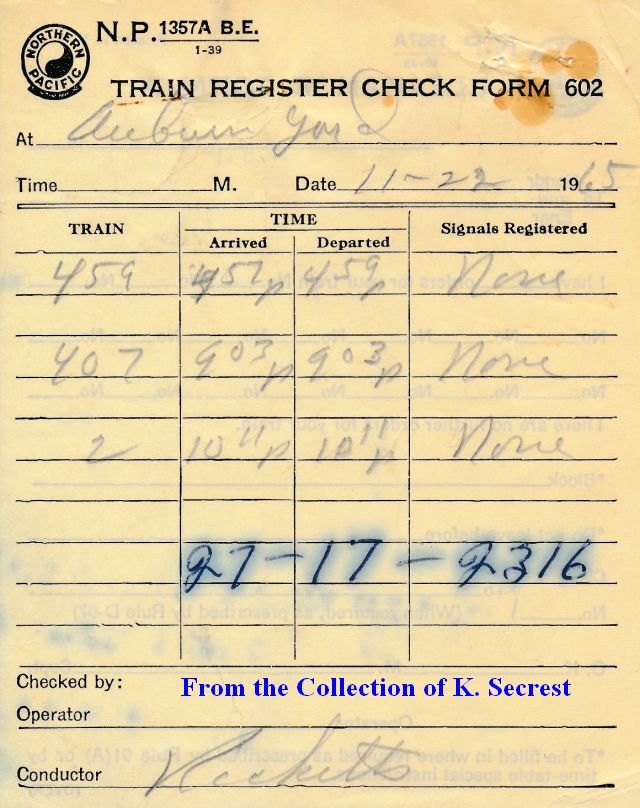 NORTHERN PACIFIC
N.P. 1357A B.E.
1-39
TRAIN REGISTER CHECK FORM 602
At Auburn Yard
Time M. Date 11-22 1965
TRAIN TIME Signals Registered
Arrived Departed
459 457p 459p None
407 903p 903p None
2 1011p 1011p None
27-17-2316
Checked by:
From the Collection of K. Secrest
Operator
Conductor